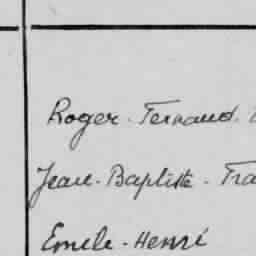 Roger. Fernand.
Jean-Baptiste. Fra
Emile-Henri